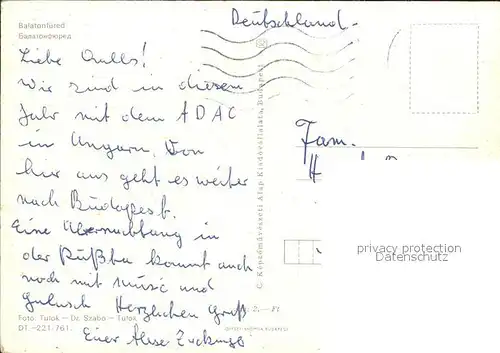 Balatonfüred
Балатонфюред
Deutschland-
Liebe
Wir sind in diesem
Jahr mit dem ADAC
in Ungarn. Von
hier aus geht es weiter
nach Budapest.
Eine Übernachtung in
der Pußta kommt auch
noch mit Musik und
Gulasch Herzlichen Gruß
Euer
Fam.
H
© Képzőművészeti Alap Kiadóvállalata, Budapest
privacy protection
Datenschutz
2,— Ft
Foto: Tulok — Dr. Szabó — Tulok